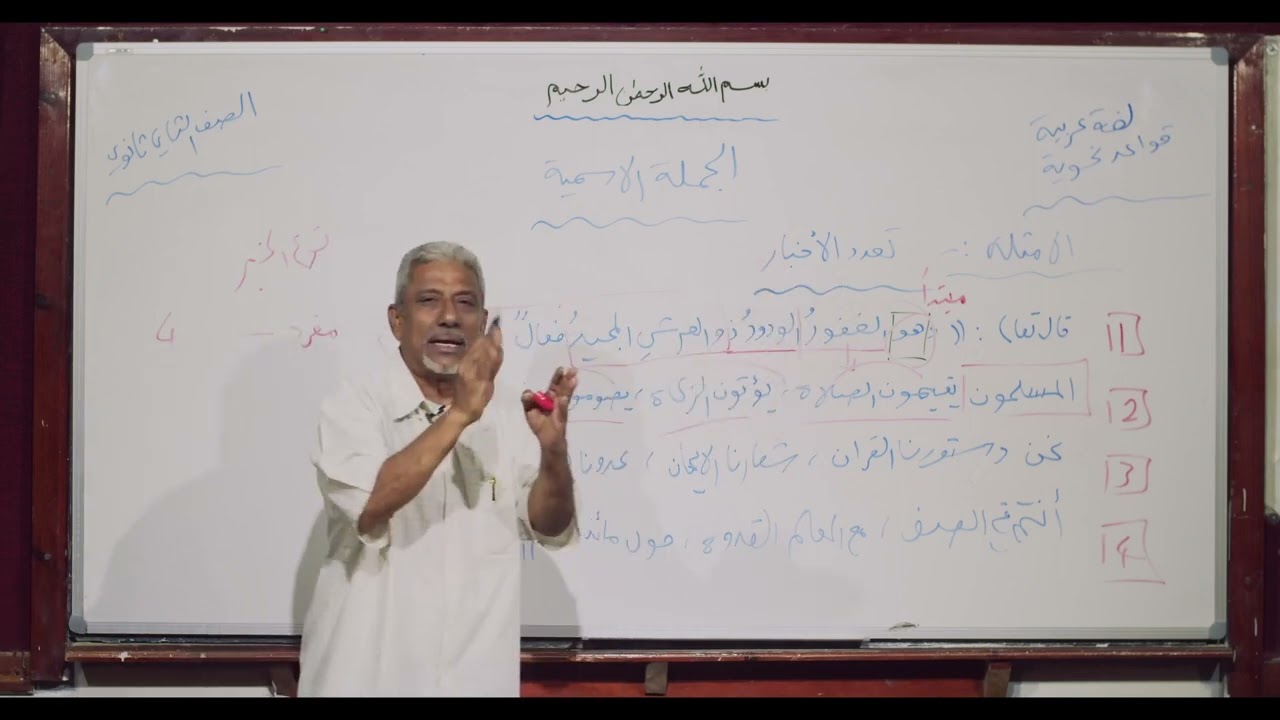 بسم الله الرحمن الرحيم
لغة عربية
قواعد نحوية
الصف الثاني ثانوي
الجملة الاسمية
الأمثلة :- تعدد الأخبار
نوع الخبر
مبتدأ
1 قال تعالى : (( هو الغفور الودود ذو العرش المجيد فعال
مفرد
2 المسلمون يقيمون الصلاة ، يؤتون الزكاة ، يصومو
3 نحن دستورنا القرآن ، شعارنا الإيمان ،
4 أنتم في الصف ، مع المعلم القدوة ، حول